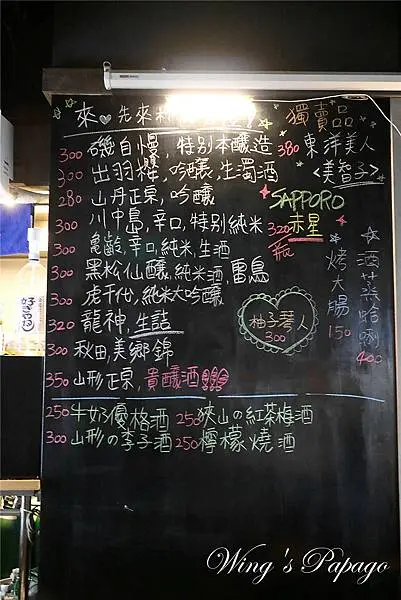 來♥先來
300 磯自慢,特別本釀造
300 出羽桜,吟釀,生濁酒
280 山丹正宗,吟釀
300 川中島,辛口,特別純米
300 亀齡,辛口,純米,生酒
300 黑松仙釀,純米酒,雷鳥
300 虎千代,純米大吟釀
320 龍神,生詰
300 秋田,美鄉錦
350 山形正宗,貴釀酒
250 牛奶優格酒 250 狹山の紅茶梅酒
300 山形の李子酒 250 檸檬燒酒
獨賣品
380 東洋美人
<美智子>
SAPPORO
赤星
320
瓶
柚子琴人
300
烤大腸
150
酒蒸蛤蜊
400
Wing's Papago